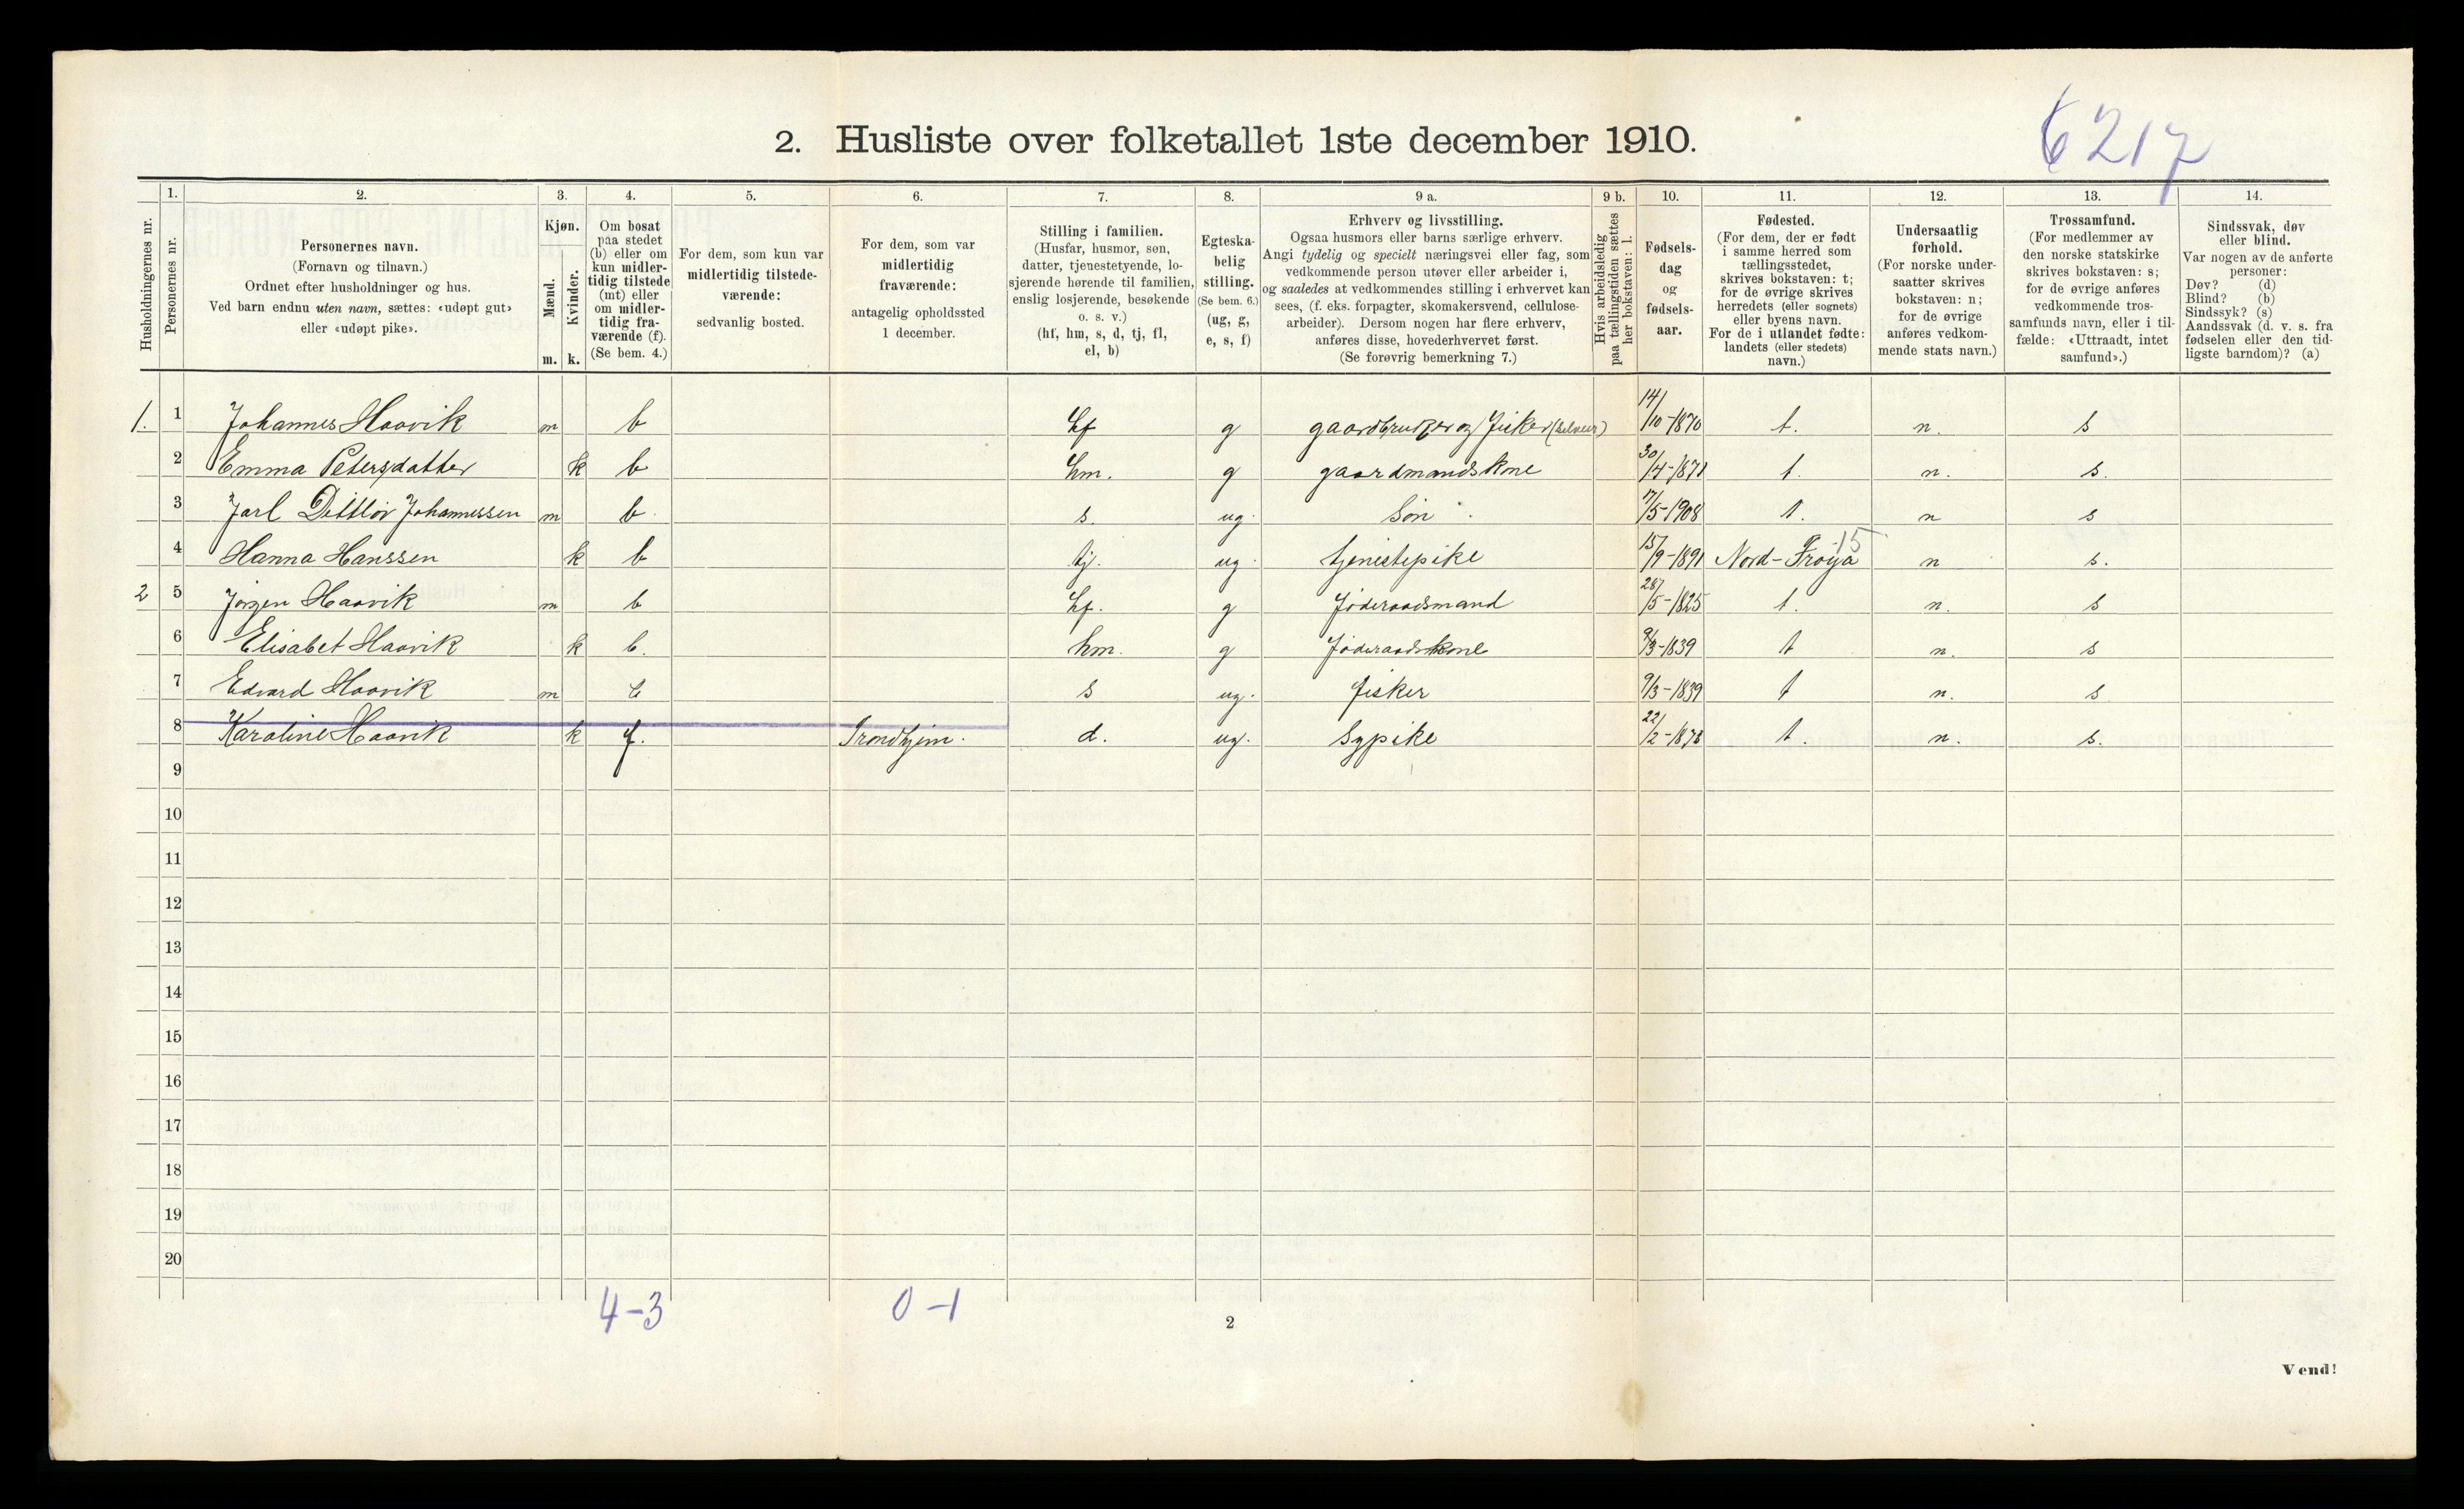 6217
2. Husliste over folketallet 1ste december 1910.
Husholdningernes nr.
1. Personernes nr.
2. Personernes navn.
(Fornavn og tilnavn.)
Ordnet efter husholdninger og hus.
Ved barn endnu uten navn, sættes: «udøpt gut»
eller «udøpt pike».
3. Kjøn.
Mænd. m.
Kvinder. k.
4. Om bosat
paa stedet
(b) eller om
kun midler-
tidig tilstede
(mt) eller
om midler-
tidig fra-
værende (f).
(Se bem. 4.)
5. For dem, som kun var
midlertidig tilstede-
værende:
sedvanlig bosted.
6. For dem, som var
midlertidig
fraværende:
antagelig opholdssted
1 december.
7. Stilling i familien.
(Husfar, husmor, søn,
datter, tjenestetyende, lo-
sjerende hørende til familien,
enslig losjerende, besøkende
o. s. v.)
(hf, hm, s, d, tj, fl,
el, b)
8. Egteska-
belig
stilling.
(Se bem. 6.)
(ug, g,
e, s, f)
9 a. Erhverv og livsstilling.
Ogsaa husmors eller barns særlige erhverv.
Angi tydelig og specielt næringsvei eller fag, som
vedkommende person utøver eller arbeider i,
og saaledes at vedkommendes stilling i erhvervet kan
sees, (f. eks. forpagter, skomakersvend, cellulose-
arbeider). Dersom nogen har flere erhverv,
anføres disse, hovederhvervet først.
(Se forøvrig bemerkning 7.)
9 b. Hvis arbeidsledig
paa tællingstiden sættes
her bokstaven: l.
10. Fødsels-
dag
og
fødsels-
aar.
11. Fødested.
(For dem, der er født
i samme herred som
tællingsstedet,
skrives bokstaven: t;
for de øvrige skrives
herredets (eller sognets)
eller byens navn.
For de i utlandet fødte:
landets (eller stedets)
navn.)
12. Undersaatlig
forhold.
(For norske under-
saatter skrives
bokstaven: n;
for de øvrige
anføres vedkom-
mende stats navn.)
13. Trossamfund.
(For medlemmer av
den norske statskirke
skrives bokstaven: s;
for de øvrige anføres
vedkommende tros-
samfunds navn, eller i til-
fælde: «Uttraadt, intet
samfund».)
14. Sindssvak, døv
eller blind.
Var nogen av de anførte
personer:
Døv? (d)
Blind? (b)
Sindssyk? (s)
Aandssvak (d. v. s. fra
fødselen eller den tid-
ligste barndom)? (a)
1. 1 Johannes Haavik m b hf g gaardbruger og fisker (selveier) 14/10-1870 t. n. s
2 Emma Petersdatter k b hm. g gaardmandskone 30/4-1871 t. n. s.
3 Jarl Dittlov Johannessen m b s. ug. Søn 7/5-1908 t. n s
4 Hanna Hanssen k b tj. ug. tjenestepike 15/9-1891 Nord-Frøya 15 n s.
2 5 Jørgen Haavik m b hf. g føderaadsmand 28/5-1825 t. n. s
6 Elisabet Haavik k b. hm. g føderaadskone 9/3-1839 t n. s
7 Edvard Haavik m b s ug. fisker 9/3-1839 t n. s
8 Karoline Haavik k f. Trondhjem. d. ug. Sypike 22/2-1878 t. n. s.
9
10
11
12
13
14
15
16
17
18
19
20
4-3 0-1
2
Vend!